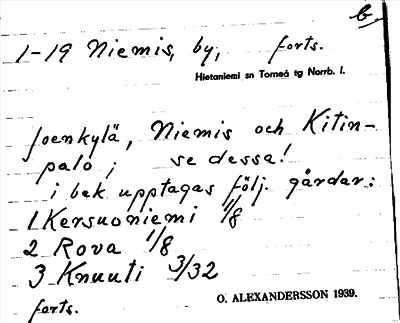 b,
1-19 Niemis, by, forts.
Hietaniemi sn Torneå tg Norrb. l.
Joenkylä, Niemis och Kitin-
palo; se dessa!
i bek upptagas följ. gårdar:
1 Kersuoniemi 1/8
2 Rova 1/8
3 Knuuti 3/32
forts.
O. ALEXANDERSSON 1939.